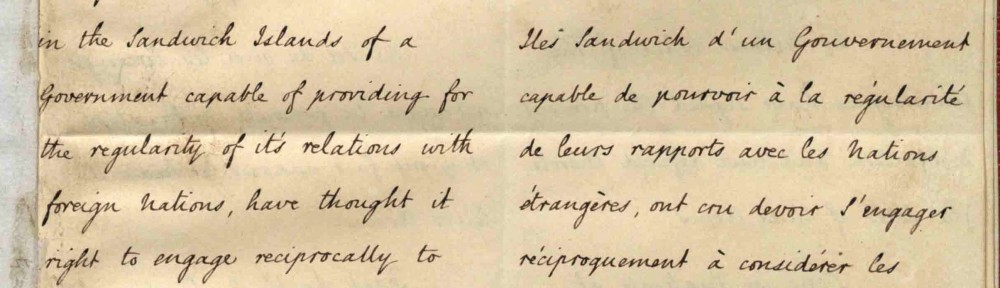 in the Sandwich Islands of a
Government capable of providing for
the regularity of it's relations with
foreign Nations, have thought it
right to engage reciprocally to
Iles Sandwich d'un Gouvernement
capable de pourvoir à la régularité
de leurs rapports avec les Nations
étrangères, ont cru devoir S'engager
réciproquement à considérer les